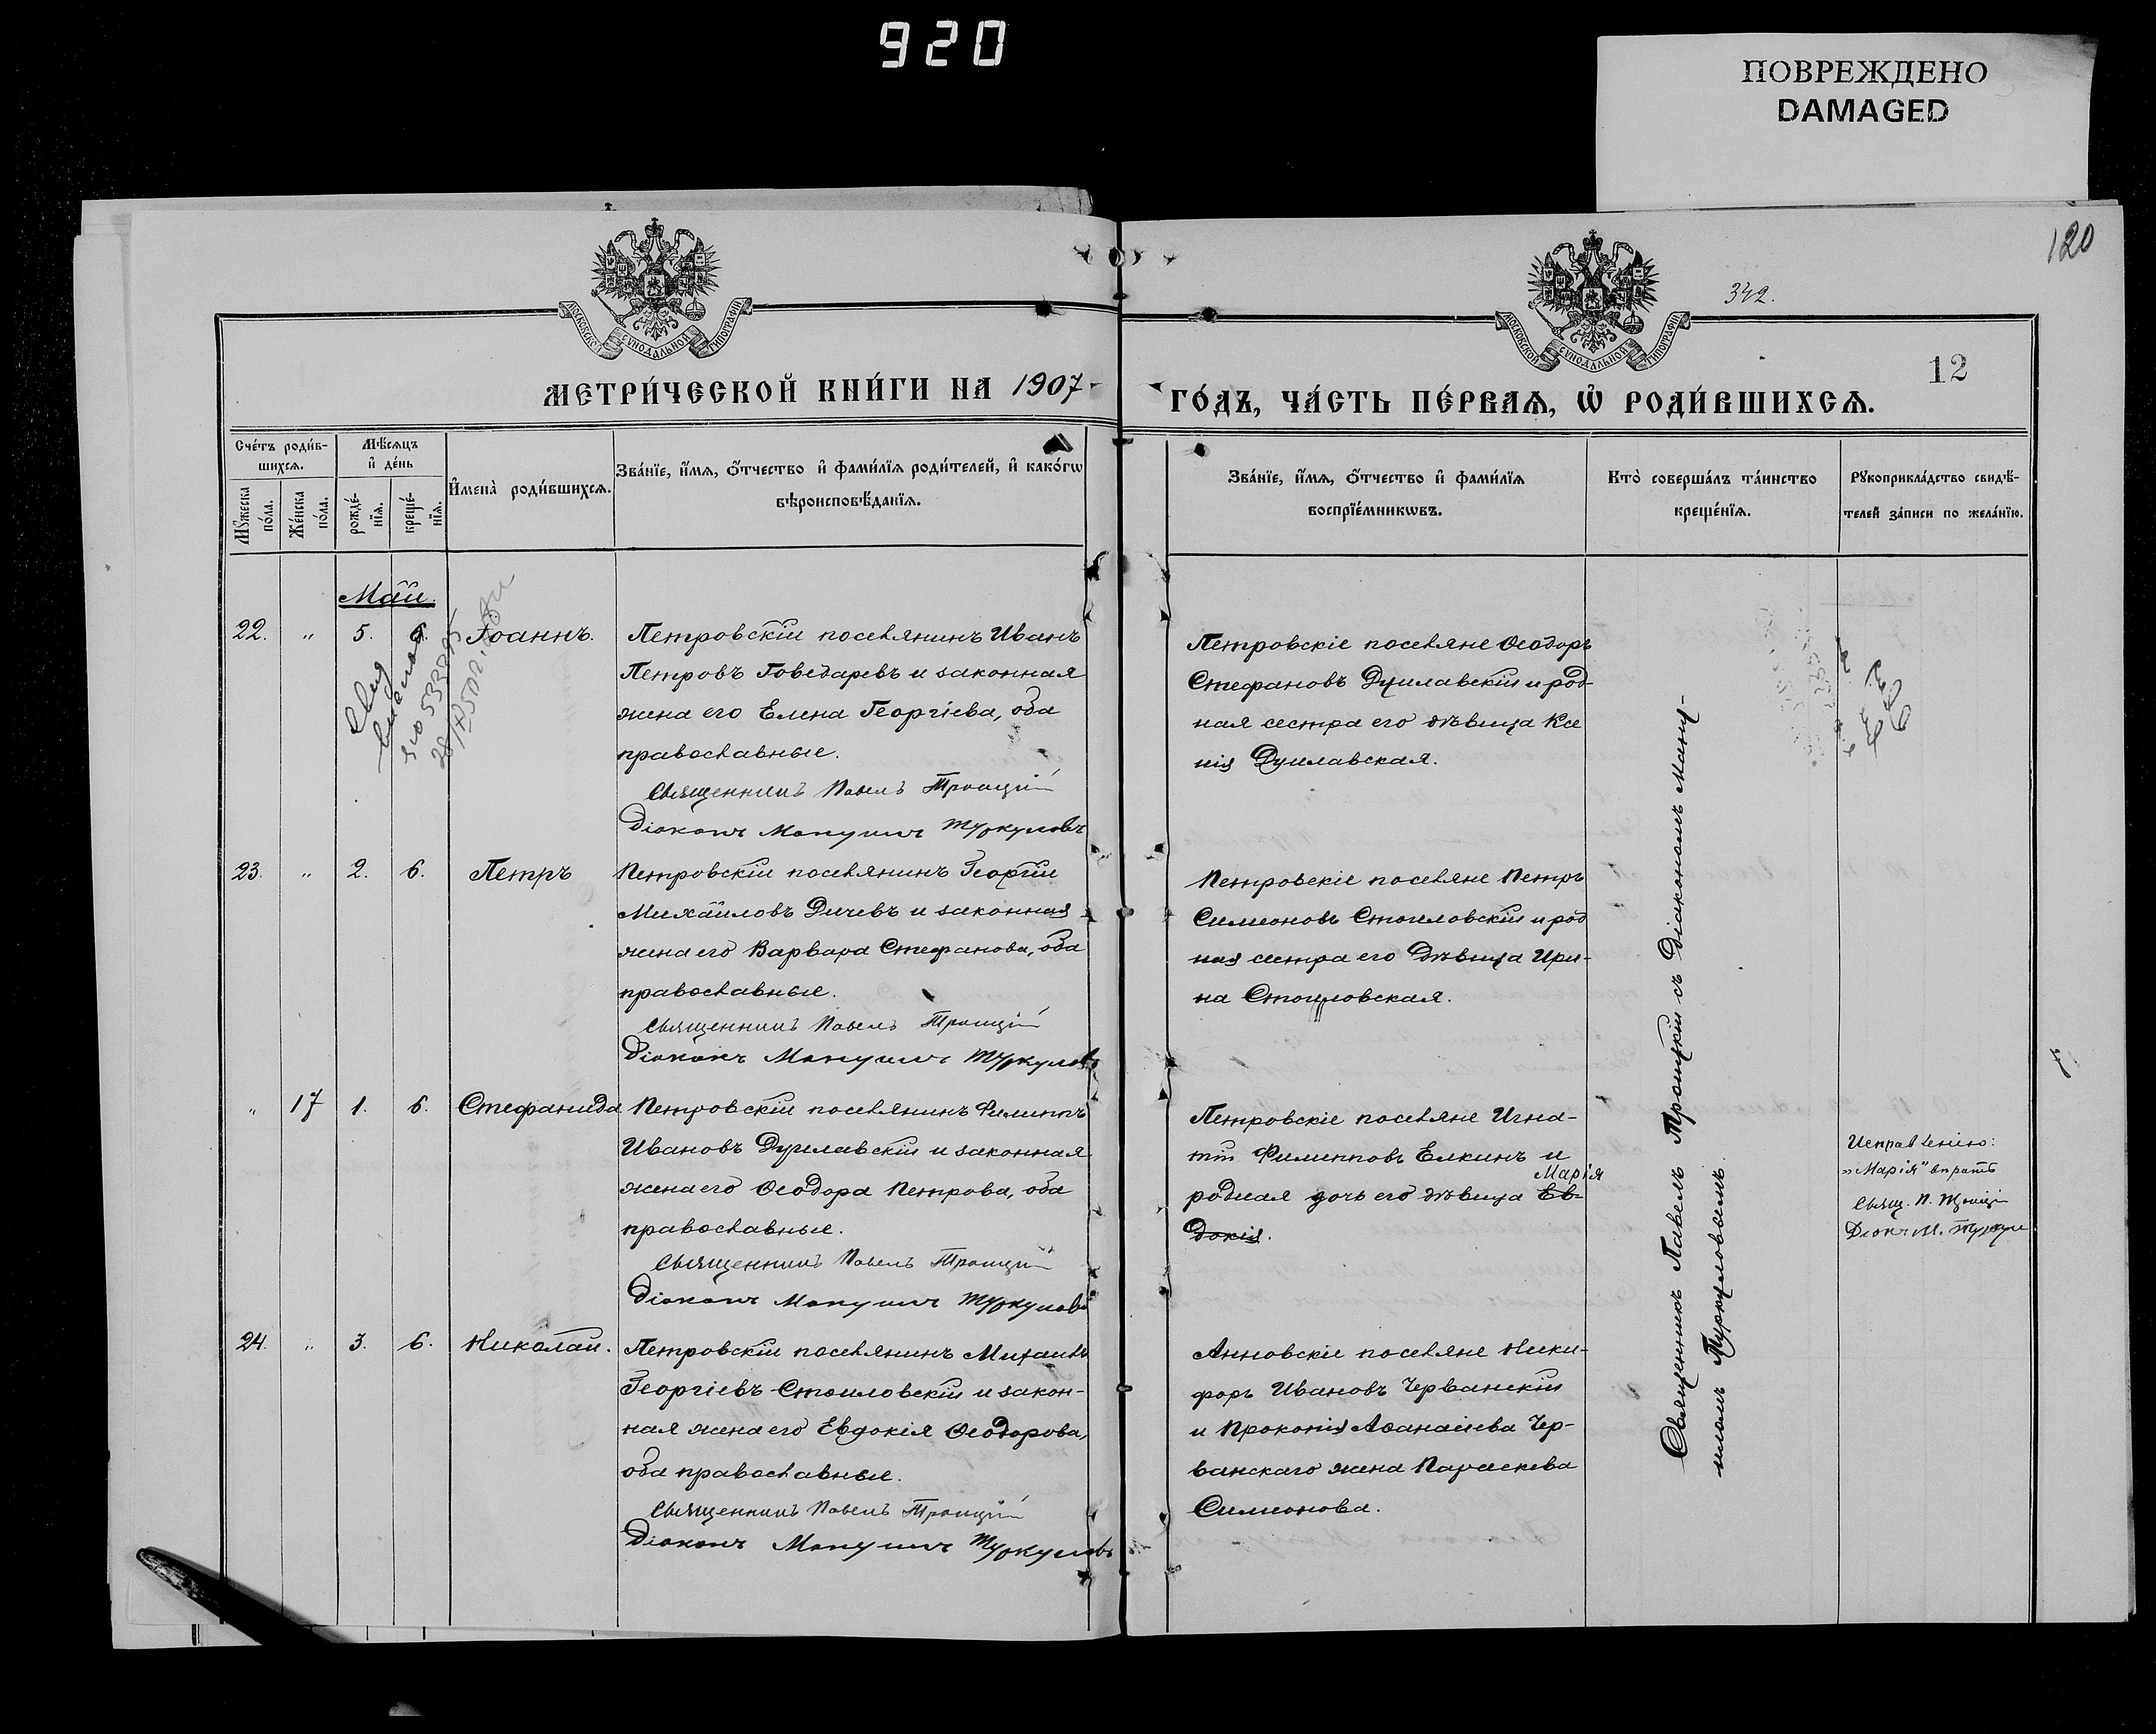 920
ПОВРЕЖДЕНО
DAMAGED
120
342.
12
МОСКОВСКОЙ СУНОДАЛЬНОЙ ТИПОГРАФІИ
МОСКОВСКОЙ СУНОДАЛЬНОЙ ТИПОГРАФІИ
МЕТРИ́ЧЕСКОЙ КНИ́ГИ НА 1907
ГО́ДЪ, ЧА́СТЬ ПЕ́РВАѦ, Ѡ҆ РОДИ́ВШИХСѦ.
Сче́тъ роди́в-
шихсѧ.
Мꙋ́жеска
по́ла.
Же́нска
по́ла.
Мѣ́сѧцъ
и҆ де́нь
рожде́-
нїѧ.
креще́-
нїѧ.
И҆мена̀ роди́вшихсѧ.
Зва́нїе, и҆́мѧ, ѻ҆́тчество и҆ фами́лїѧ роди́телей, и҆ како́гѡ
вѣроисповѣ́данїѧ.
Зва́нїе, и҆́мѧ, ѻ҆́тчество и҆ фами́лїѧ
воспрїе́мникѡвъ.
Кто̀ соверша́лъ та́инство
креще́нїѧ.
Рꙋкоприкла́дство свидѣ́-
телей за́писи по жела́нїю.
Май.
22. " 5. 6. Іоаннъ.
Петровскій поселянинъ Иванъ
Петровъ Говедаревъ и законная
жена его Елена Георгіева, оба
православные.
Священникъ Павелъ Троицкій
Діаконъ Мануилъ Туркуловъ
Петровскіе поселяне Ѳеодоръ
Стефановъ Дуилавскій и род-
ная сестра его дѣвица Ксе
нія Дуилавская.
23. " 2. 6. Петръ
Петровскій поселянинъ Георгій
Михайловъ Дичевъ и законная
жена его Варвара Стефанова, оба
православные.
Священникъ Павелъ Троицкій
Діаконъ Мануилъ Туркуловъ
Петровскіе поселяне Петръ
Симеоновъ Стоиловскій и род
ная сестра его дѣвица Ири-
на Стоиловская.
" 17 1. 6. Стефанида
Петровскій поселянинъ Филиппъ
Ивановъ Дуилавскій и законная
жена его Ѳеодора Петрова, оба
православные.
Священникъ Павелъ Троицкій
Діаконъ Мануилъ Туркуловъ
Петровскіе поселяне Игна-
тій Филипповъ Елкинъ и
Марія
родная дочь его дѣвица Ев-
докія.
Исправленію:
"Марія" вѣрить
Свящ. П. Троицкій
Діак. М. Туркул
24. " 3. 6. Николай.
Петровскій поселянинъ Михаилъ
Георгіевъ Стоиловскій и закон-
ная жена его Евдокія Ѳеодорова,
оба православные.
Священникъ Павелъ Троицкій
Діаконъ Мануилъ Туркуловъ
Анновскіе поселяне Ники-
форъ Ивановъ Черванскій
и Прокопія Аѳанасіева Чер-
ванскаго жена Параскева
Симеонова.
Священникъ Павелъ Троицкій съ Діакономъ Ману-
иломъ Туркуловымъ.